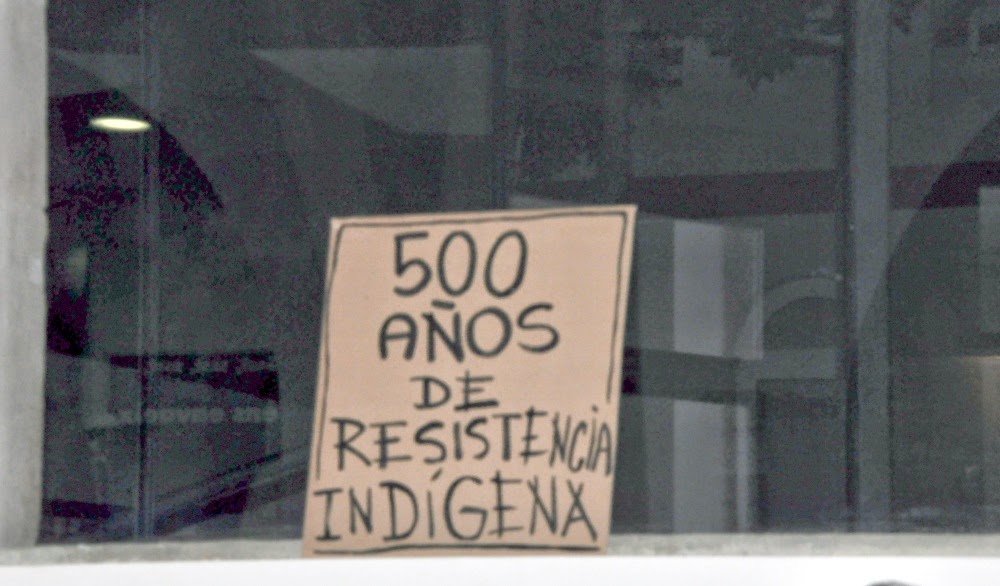 500
AÑOS
DE
RESISTENCIA
INDÍGENA